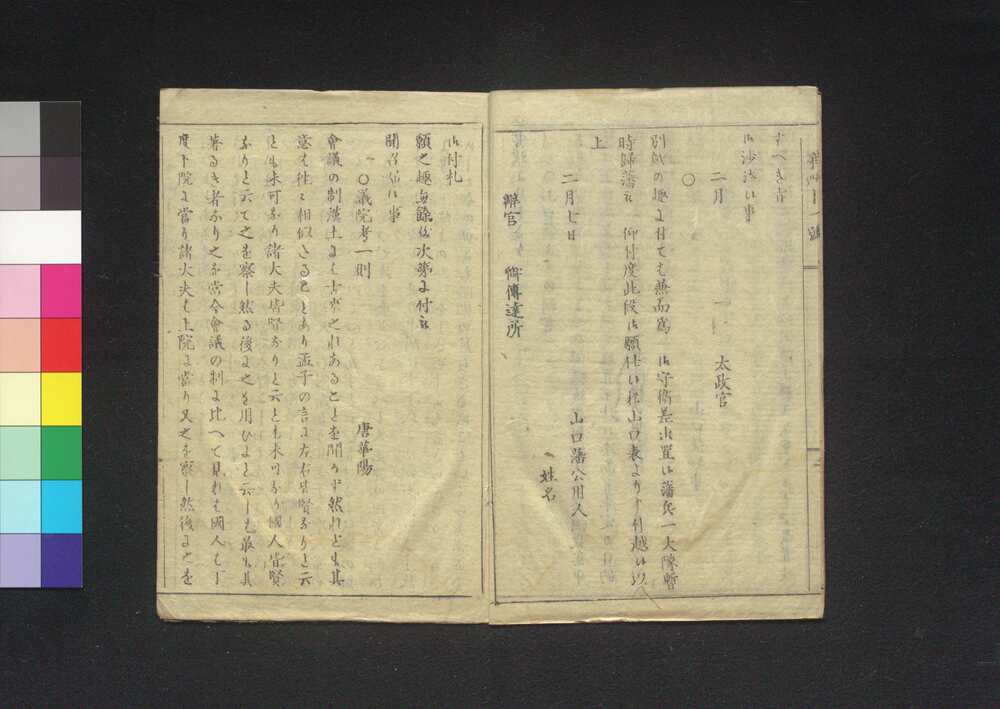 すへき旨
御沙汰候事
二月
太政官
〇
別紙の趣に付ても兼而為 御守衛差出置候藩兵一大隊暫
時歸藩被 仰付度此段御願仕候様山口表より申付越候以
上
二月七日
山口藩公用人
姓名
辨官 御傳達所
御付札
願之趣無餘儀次第に付被
聞召届候事
〇議院考一則
唐華陽
會議の制漢土にも古来これあることを聞かず然れども其
意は往々相似たることあり孟子の言に左右皆賢なりと云
とも未可なり諸大夫皆賢なりと云とも未可なり國人皆賢
なりと云て之を察し然る後に之を用ひよと云しも最も其
著るき者なり之を當今會議の制に比へて見れは國人は丁
度下院に當り諸大夫は上院に當り又之を察し然後に之を